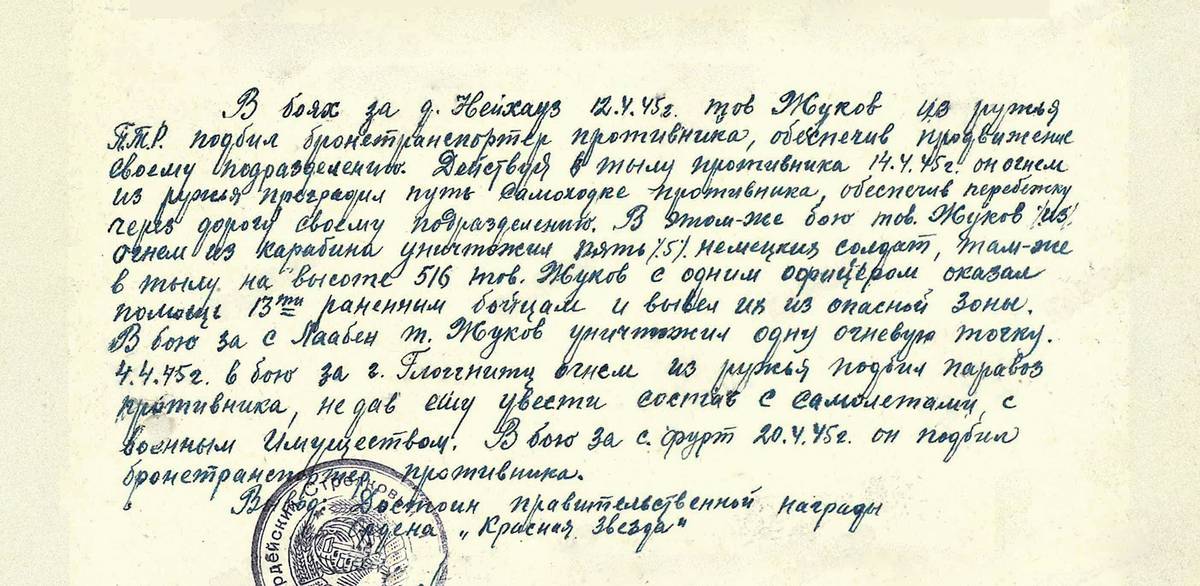 В боях за д. Нейхауз 12.4.45г. тов Жуков из ружья
П.Т.Р. подбил бронетранспортер противника, обеспечив продвижение
своему подразделению. Действуя в тылу противника 14.4.45г. он огнем
из ружья преградил путь самоходке противника, обеспечив перебежку
через дорогу своему подразделению. В этом-же бою тов. Жуков /из/
огнем из карабина уничтожил пять /5/ немецких солдат, там-же
в тылу на высоте 516 тов. Жуков с одним офицером оказал
помощь 13ти раненным бойцам и вывел их из опасной зоны.
В бою за с Лаабен т. Жуков уничтожил одну огневую точку.
4.4.45г. в бою за г. Глоггнитц огнем из ружья подбил паравоз
противника, не дав ему увести состав с самолетами, с
военным имуществом. В бою за с. фурт 20.4.45г. он подбил
бронетранспортер противника.
Вывод: Достоин правительственной награды
ордена „Красная Звезда"
рдейский Стрелков